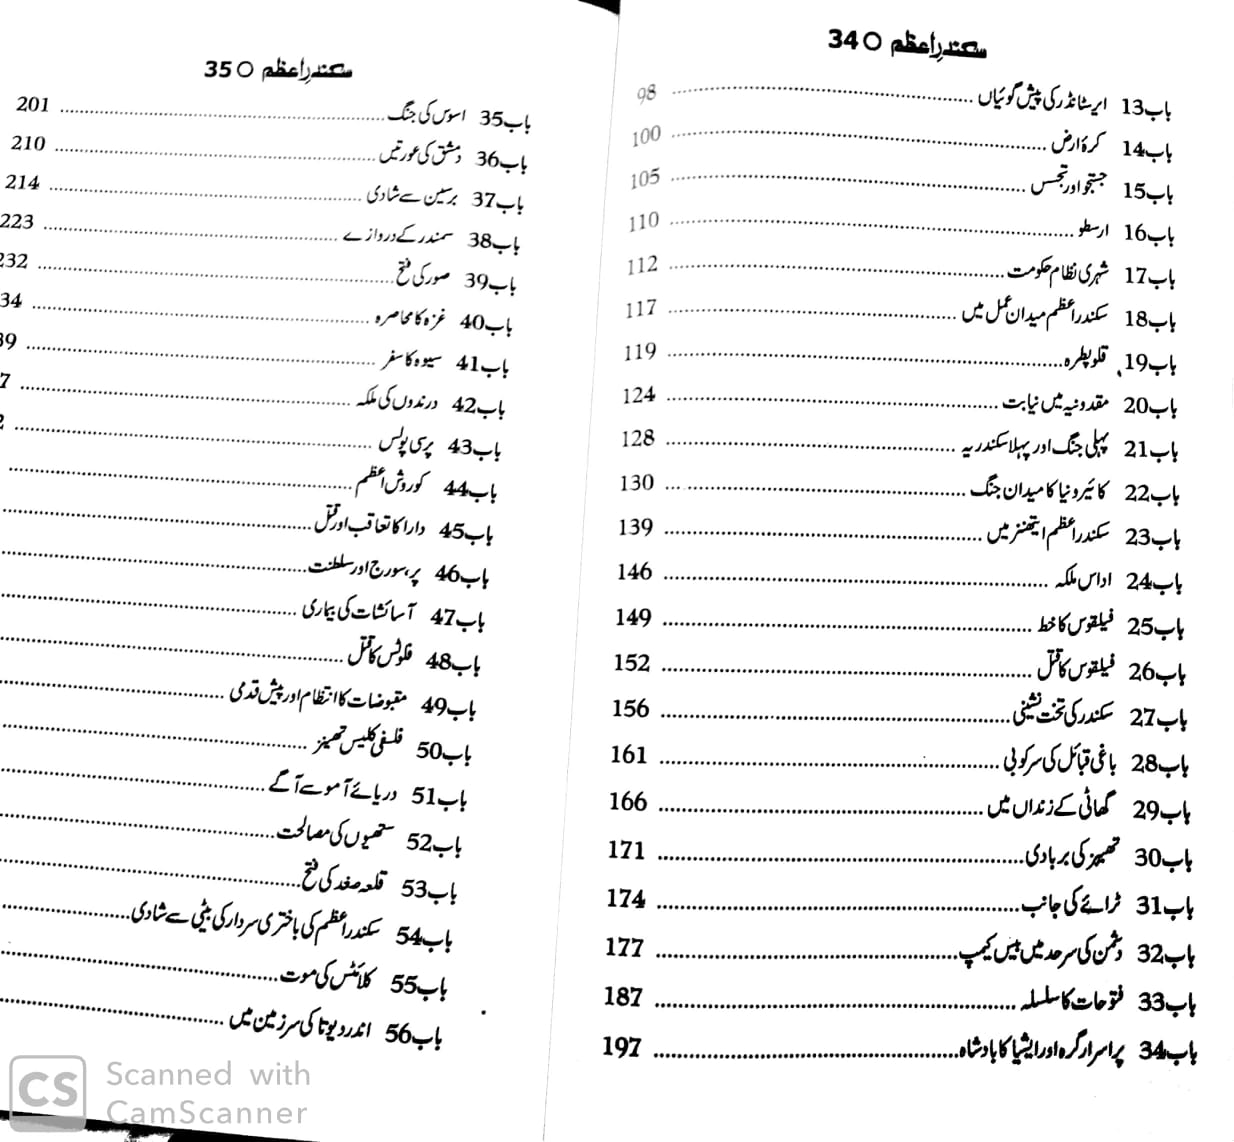 سکندراعظم O 34
باب13 ایرسٹانڈر کی پیش گوئیاں ........ 98
باب14 کرۂ ارض ........ 100
باب15 جستجو اور تجسس ........ 105
باب16 ارسطو ........ 110
باب17 شہری نظام حکومت ........ 112
باب18 سکندراعظم میدان عمل میں ........ 117
باب19 قلوپطرہ ........ 119
باب20 مقدونیہ میں نیابت ........ 124
باب21 پہلی جنگ اور پہلا سکندریہ ........ 128
باب22 کائیرونیا کا میدان جنگ ........ 130
باب23 سکندراعظم ایتھنز میں ........ 139
باب24 اداس ملکہ ........ 146
باب25 فیلقوس کا خط ........ 149
باب26 فیلقوس کا قتل ........ 152
باب27 سکندر کی تخت نشینی ........ 156
باب28 باغی قبائل کی سرکوبی ........ 161
باب29 گھاٹی کے زنداں میں ........ 166
باب30 تھیبز کی بربادی ........ 171
باب31 ٹرائے کی جانب ........ 174
باب32 دشمن کی سرحد میں بیس کیمپ ........ 177
باب33 فتوحات کا سلسلہ ........ 187
باب34 پراسرار گرہ اور ایشیا کا بادشاہ ........ 197
سکندراعظم O 35
باب35 اسوس کی جنگ ........ 201
باب36 دمشق کی عورتیں ........ 210
باب37 برسین سے شادی ........ 214
باب38 سمندر کے دروازے ........ 223
باب39 صور کی فتح ........ 232
باب40 غزہ کا محاصرہ ........ 34
باب41 سیوہ کا سفر ........ 39
باب42 درندوں کی ملکہ ........ 7
باب43 پرسی پولس ........ 2
باب44 کوروش اعظم ........
باب45 دارا کا تعاقب اور قتل ........
باب46 پر، سورج اور سلطنت ........
باب47 آسائشات کی بیماری ........
باب48 فلوٹس کا قتل ........
باب49 مقبوضات کا انتظام اور پیش قدمی ........
باب50 فلسفی کلیس تھینز ........
باب51 دریائے آمو سے آگے ........
باب52 ستھیوں کی مصالحت ........
باب53 قلعہ صغد کی فتح ........
باب54 سکندراعظم کی باختری سردار کی بیٹی سے شادی ........
باب55 کلائٹس کی موت ........
باب56 اندر دیوتا کی سرزمین میں ........
CS Scanned with
CamScanner